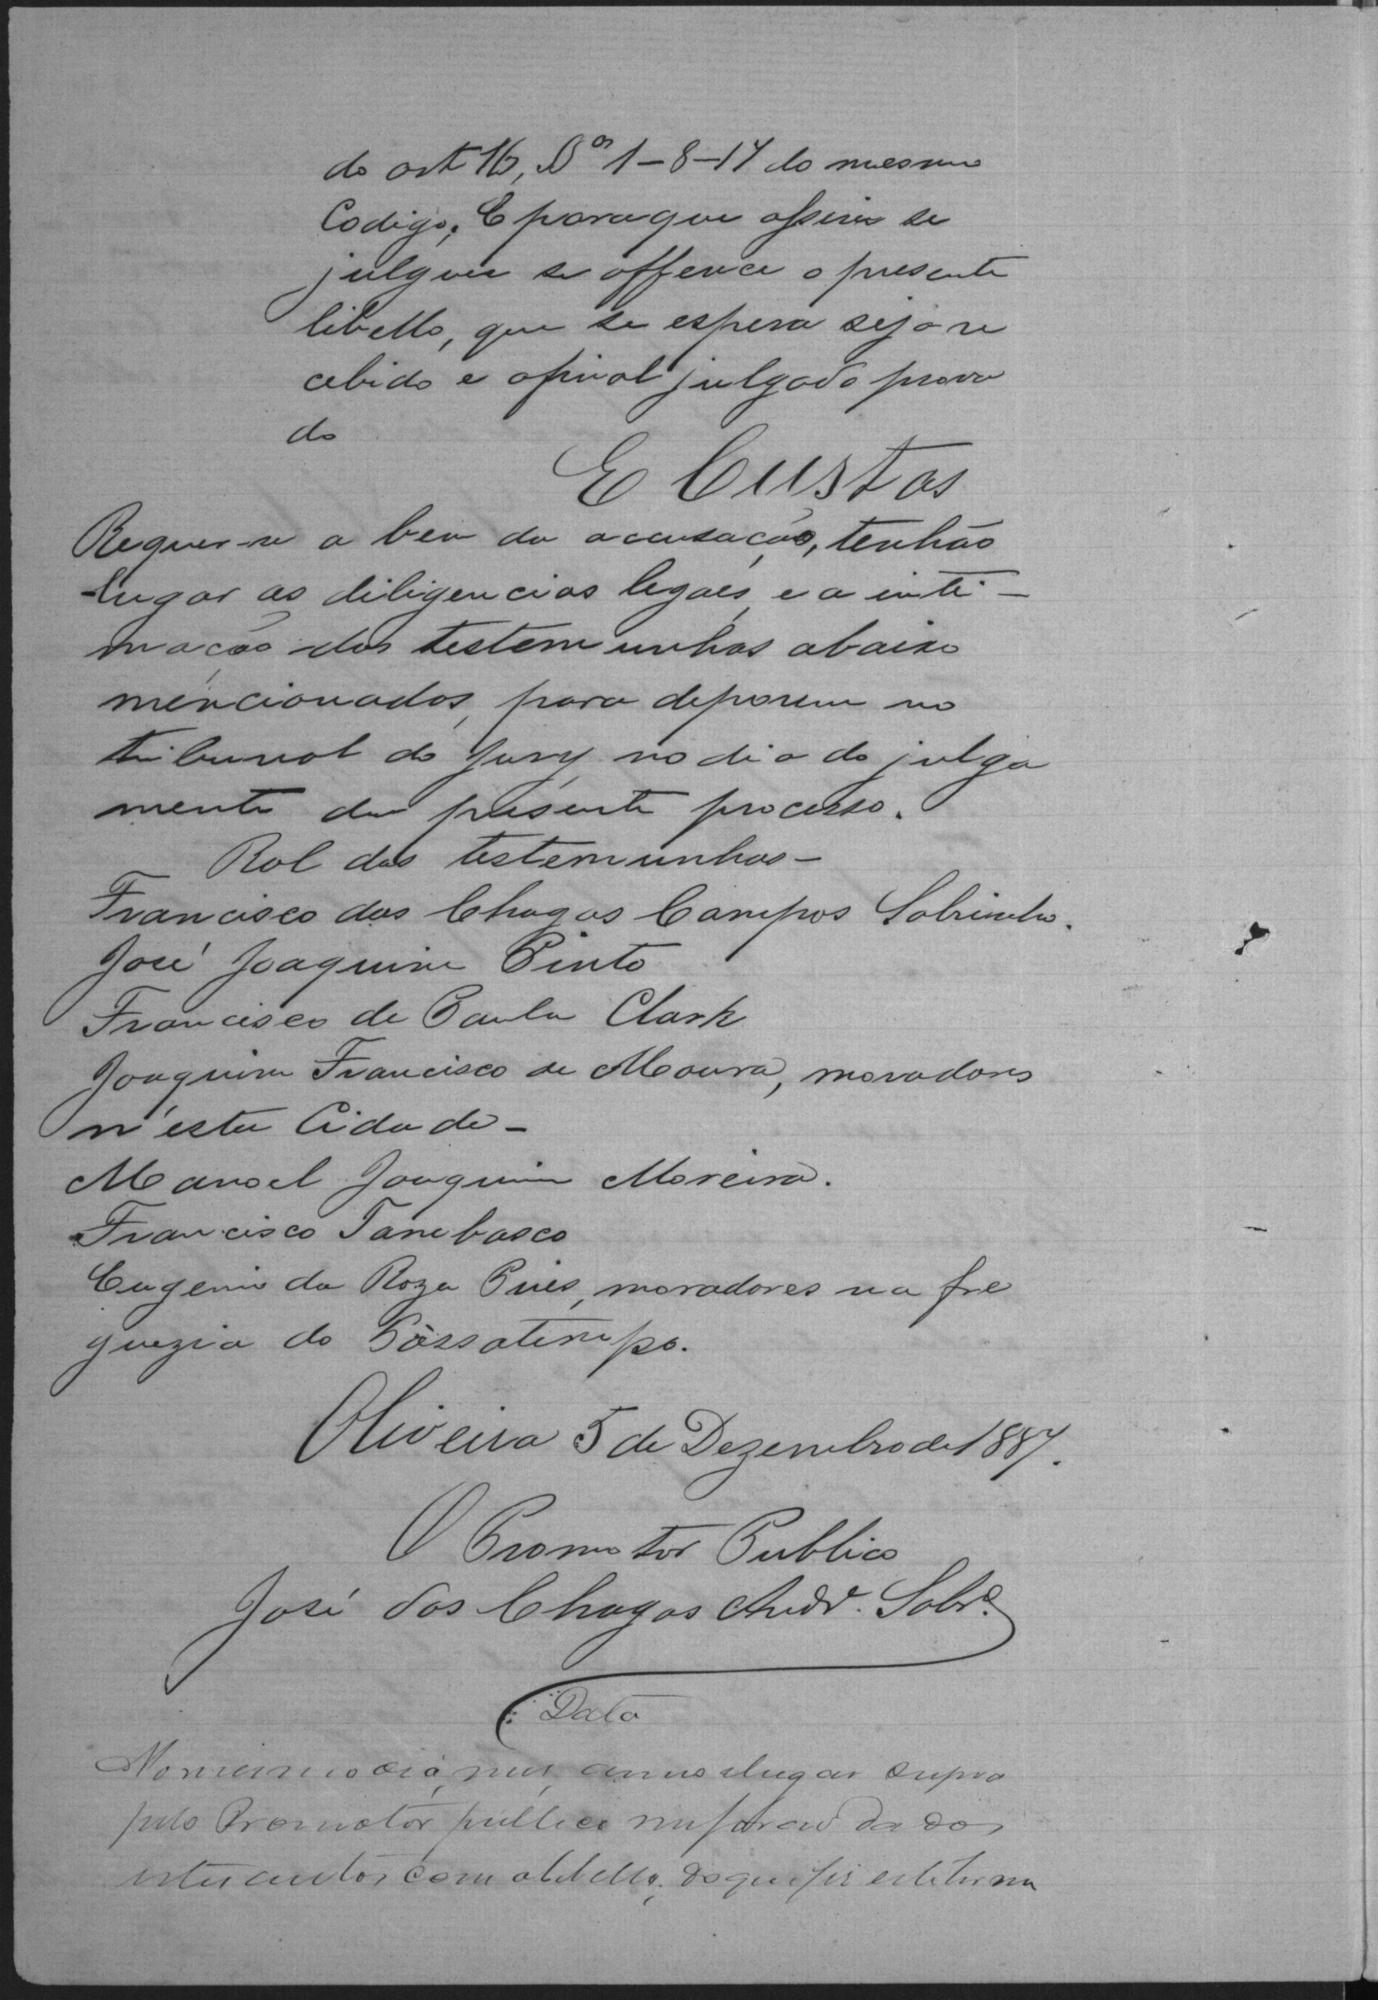 do art 16, §os 1-8-17 do mesmo
Codigo. E para que assim se
julgue se offerece o presente
libello, que se espera seja re
cebido e afinal julgado prova
do
E Custas
Requer-se a bem da accusação, tenhão
lugar as diligencias legaes, e a inti-
mação das testemunhas abaixo
mencionadas, para deporem no
tribunal do Jury, no dia do julga
mento do presente processo.
Rol das testemunhas-
Francisco das Chagas Campos Sobrinho.
José Joaquim Pinto
Francisco de Paula Clark
Joaquim Francisco de Moura, moradores
n'esta Cidade-
Manoel Joaquim Moreira.
Francisco Tambasco
Eugenio da Roza Pires, moradores na fre
guezia do Passatempo.
Oliveira 5 de Dezembro de 1887.
O Promotor Publico
José das Chagas Andre. Sobro.
Data
No mesmo dia, mez, anno e lugar supra
pelo Promotor publico me forão dados
estes autos com o libello; do que fiz este termo